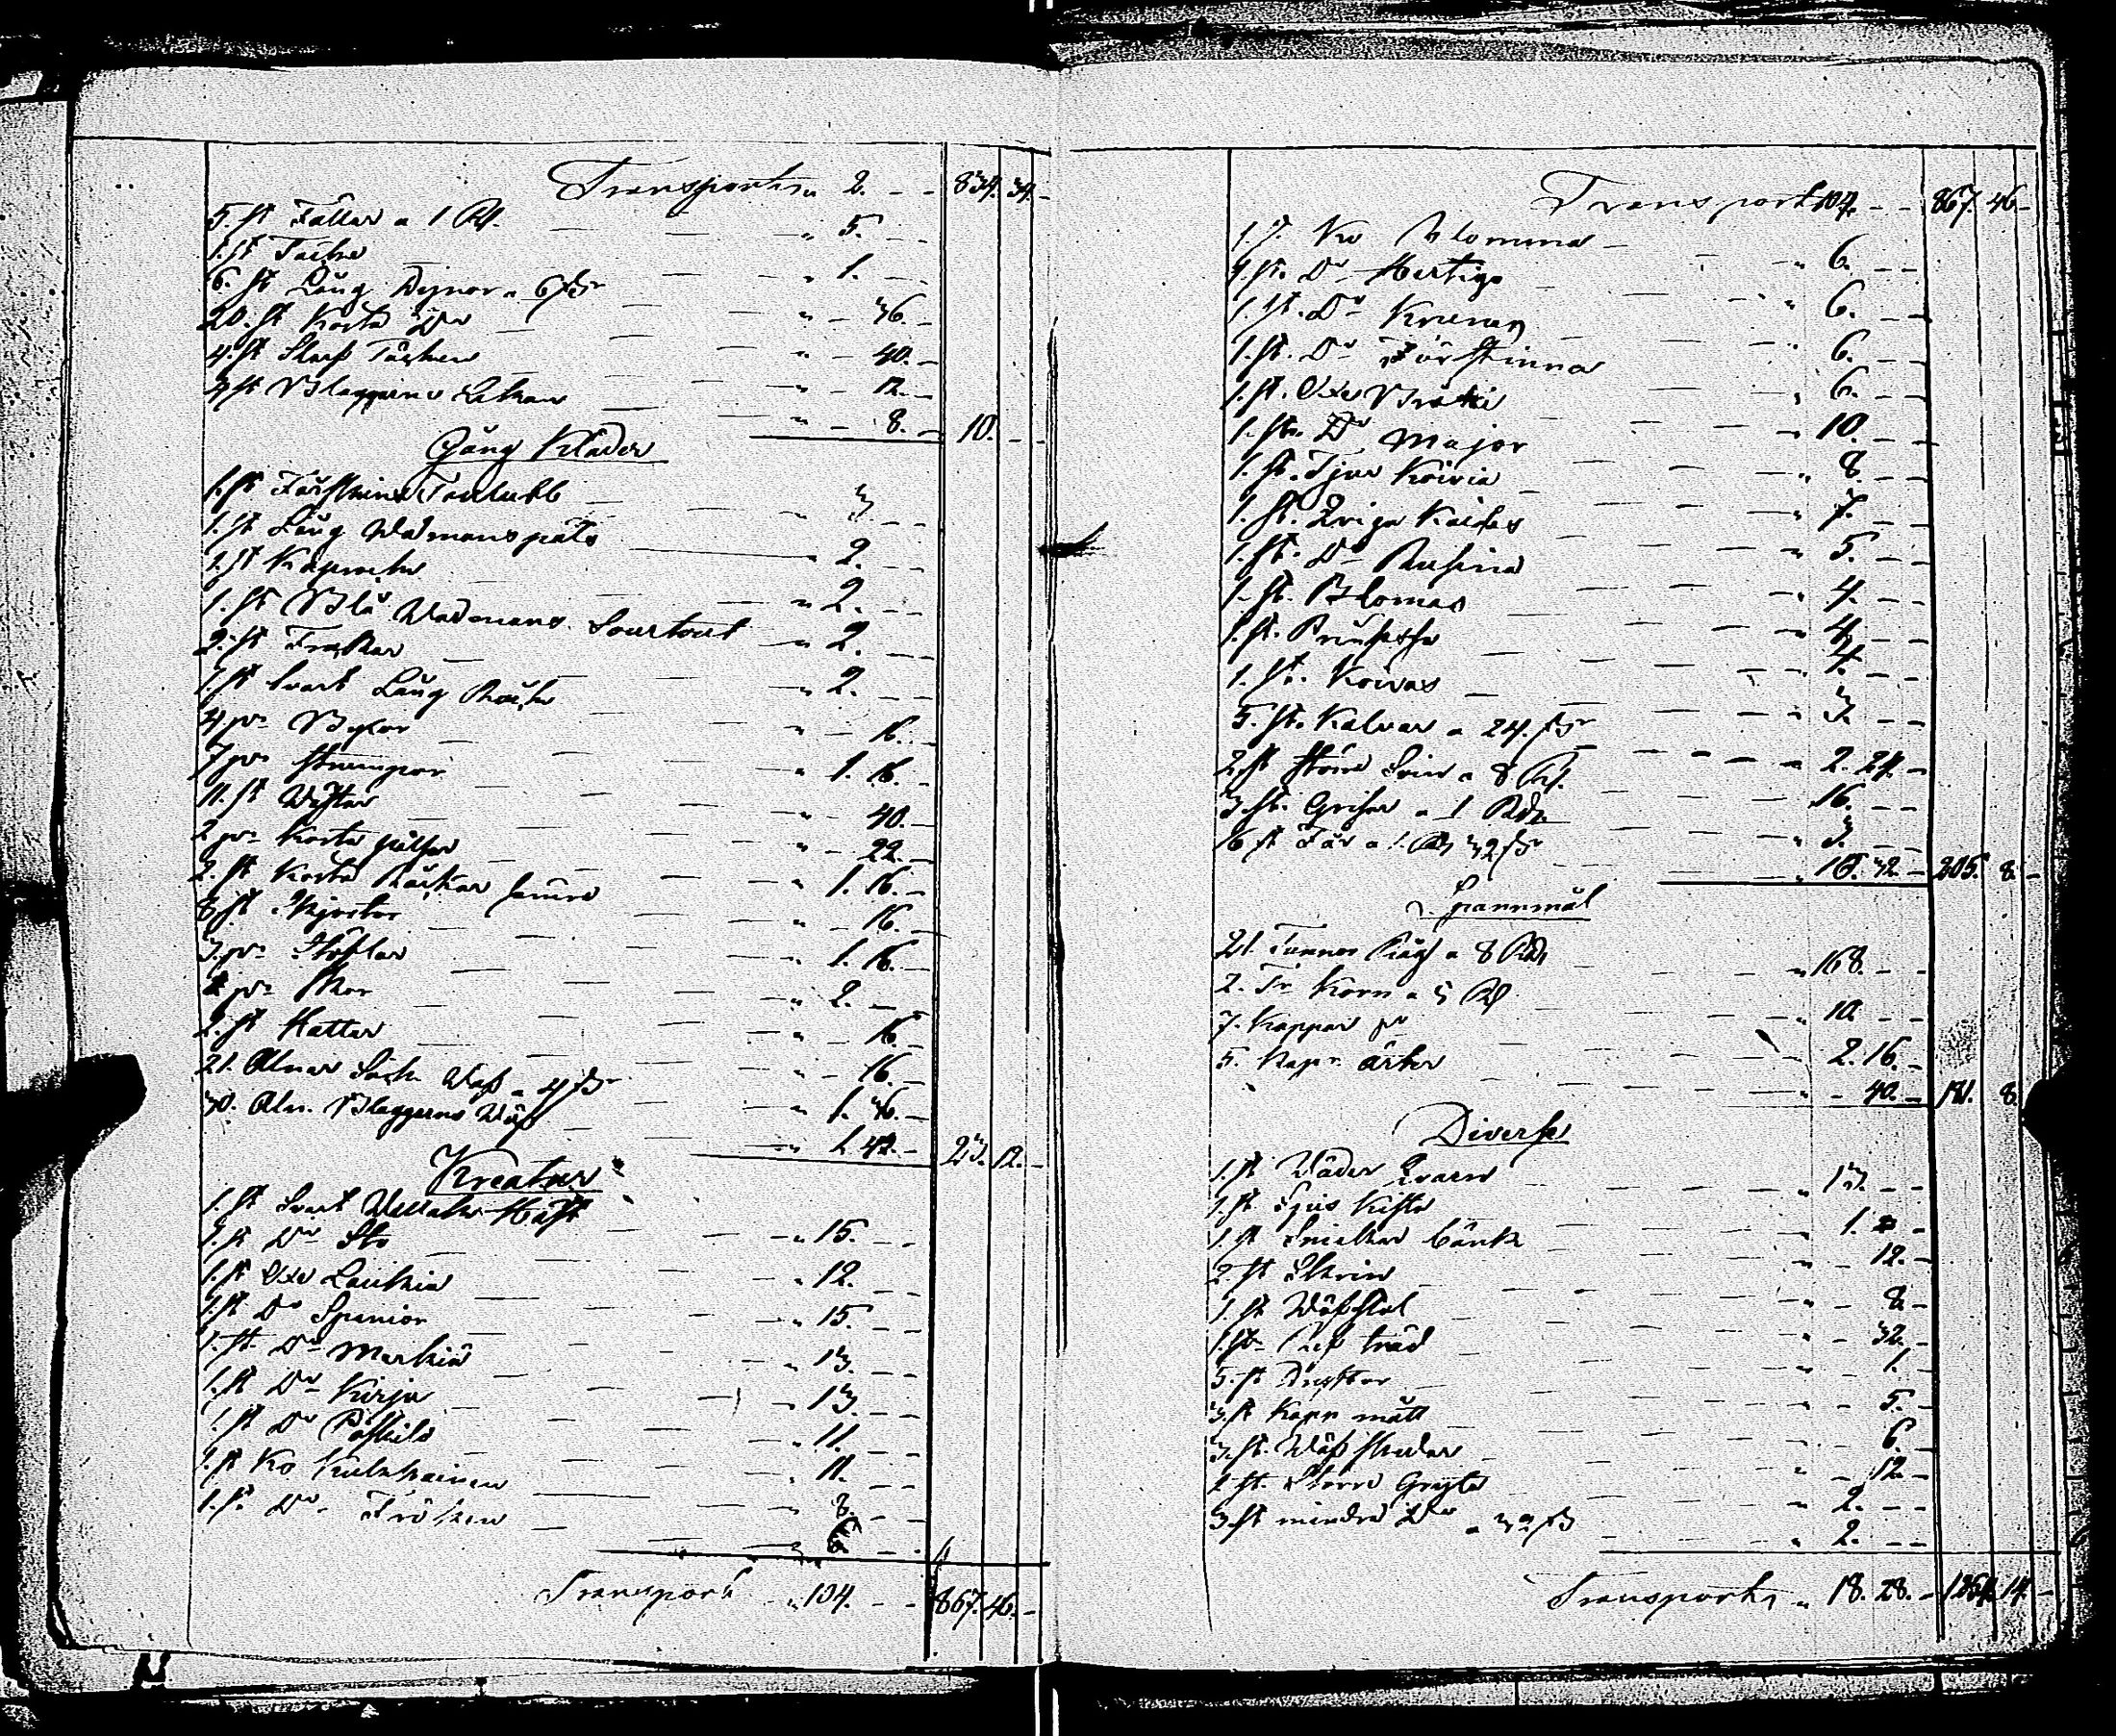 Transport „ 2. – – 834. 34. –
5. st Fällar a 1 Rd. „ 5. – –
1. st Täcke „ 1. – –
6. st Lång Dynor a 6 sk „ – 36. –
20. st Korta Do „ – 40. –
4. st Slarf Täcken „ – 12. –
4 st Blaggarns Lakan „ – 8. – 10. – –
Gång Kläder
1. st Fårskins Toulubb 3. – –
1. st Lång Wadmans päls „ 2. – –
1. st Kaprock „ 2. – –
1. st Blå Wadmans Sourtout „ 2. – –
2. st Frackar „ 2. – –
1. st Svart Lång Råck „ – 16. –
4 pr Byxor „ 1. 16. –
7 pr strumpor „ – 40. –
11. st Wästar „ – 22. –
2 pr Korta pälsar „ 1. 16. –
2. st Korta Råckar „ – 16. –
8 st Skjortor „ 1. 16. –
3. pr Stöflar „ 2. – –
2 pr Skor „ – 16. –
2. st Hattar „ – 16. –
21. Alnar Säck Wäf a 4 sk „ 1. 36. –
30. Aln. Blaggarns Wäf „ 1. 42. – 23. 12. –
Kreatur
1. st Svart Wallack Häst „ 15. – –
1. st Do Sto „ 12. – –
1. st Oxe Laukia „ 15. – –
1. st Do Spanior „ 13. – –
1. st. Do Merkiä „ 13. – –
1. st Do Kirja „ 11. – –
1. st Do „ 11. – –
1. st Ko „ 8. – –
1. st. Do Fröken „ 6. – –
Transport „ 104. – – 867. 46. –
Transport 104. – – 867. 46 –
1 st. Ko Blomma – „ 6. – –
1. st. Do Hertigo „ 6. – –
1. st. Do „ 6. – –
1. st. Do Förstinna „ 6. – –
1. st. Oxe „ 10. – –
1. st. Do Major „ 8. – –
1. st. Tjur Köivia „ 7. – –
1. st. Qviga „ 5. – –
1. st. Do Rusina „ 4. – –
1. st. Blomas „ 4. – –
1. st. „ 4. – –
1. st. Koivas „ 3. – –
5. st. Kalvar a 24. sk „ 2. 24. –
2. st störe Svin a 8 Rd. „ 16. – –
3. st. Grisar a 1 Rd. „ 3. – –
16 st Får a 1. Rd 32 sk „ 10. 32. – 205. 8. –
Spannmål
21. Tunnor Råg a 8 Rd „ 168. – –
2. Tr Korn a 5 Rd „ 10. – –
7. Kappar Do „ 2. 16. –
5. Kapr ärter „ – 40. – 181. 8. –
Diverse
1. st Wäder Qvarn „ 13. – –
1. st Ljus Kista 1. –
1. st Snickar bänk „ – 12. –
2. st Skrin „ – 8. –
1. st Wäfstol „ – 32. –
1. st träd „ – 1. –
5. st „ – 5. –
3. st Kapp mått „ – 6. –
3. st. Wäfskedar „ – 12. –
2 st. Större Gryta „ 2. – –
3. st mindre Do a 32 sk „ 2. – –
Transport „ 18. 28. – 1254. 14. –